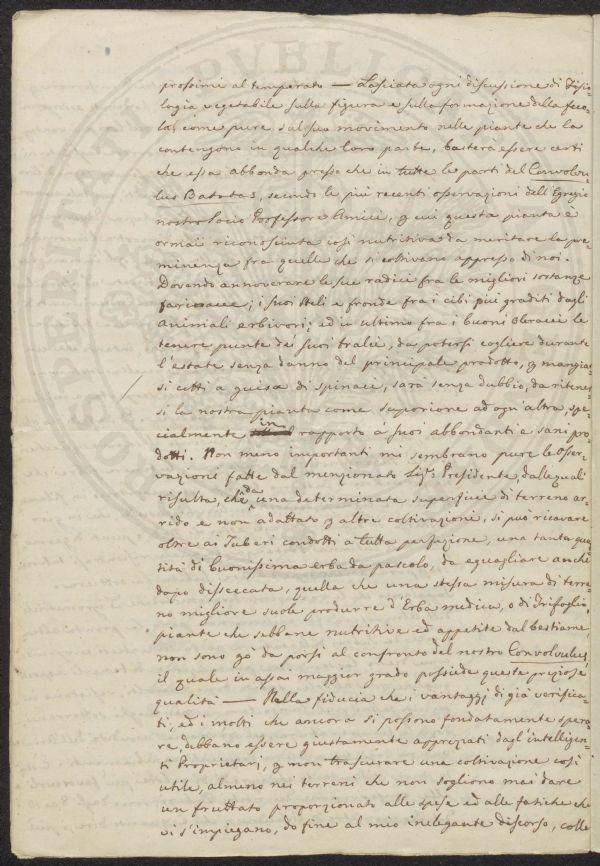 prossimi al temperato — Lasciata ogni discussione di Fisio-
logia vegetabile sulla figura e sulla formazione della feco-
la, come pure sul suo movimento nelle piante che la
contengono in qualche loro parte, basterà essere certi
che essa abbonda presso che in tutte le parti del Convolvu-
lus Batatas, secondo le più recenti osservazioni dell'Egregio
nostro Socio Professore Amici, p cui questa pianta è
ormai riconosciuta così nutritiva da meritare la pre-
minenza fra quelle che si coltivano appresso di noi.
Dovendo annoverare le sue radici fra le migliori sostanze
farinacee; i suoi steli e fronde fra i cibi più graditi dagli
animali erbivori; ed in ultimo fra i buoni Erbacei le
tenere punte dei suoi tralci, da potersi cogliere durante
l'estate senza danno del principale prodotto, p mangiar-
si cotti a guisa di spinaci, sarà senza dubbio, da ritener-
si la nostra pianta come superiore ad ogni altra, spe-
cialmente in rapporto a' suoi abbondanti e sani pro-
dotti. Non meno importanti mi sembrano pure le Osser-
vazioni fatte dal menzionato Sigr. Presidente, dalle quali
risulta, che da una determinata superficie di terreno ar-
rido e non adattato p altre coltivazioni, si può ricavare
oltre ai Tuberi condotti a tutta perfezione, una tanta quan
tità di buonissima erba da pascolo, da eguagliare anche
dopo disseccata, quella che una stessa misura di terre-
no migliore suole produrre d'Erba medica, o di Trifoglio,
piante che sebbene nutritive ed appetite dal bestiame,
non sono pò da porsi al confronto del nostro Convolvulus
il quale in assai maggior grado possiede queste preziose
qualità — Nella fiducia che i vantaggj di già verifica-
ti, ed i molti che ancora si possono fondatamente spera-
re, debbano essere giustamente apprezzati dagl'intelligen-
ti Proprietari, p non trascurare una coltivazione così
utile, almeno nei terreni che non sogliono mai dare
un fruttato proporzionato alle spese ed alle fatiche che
vi s'impiegano, do fine al mio inelegante discorso, colle